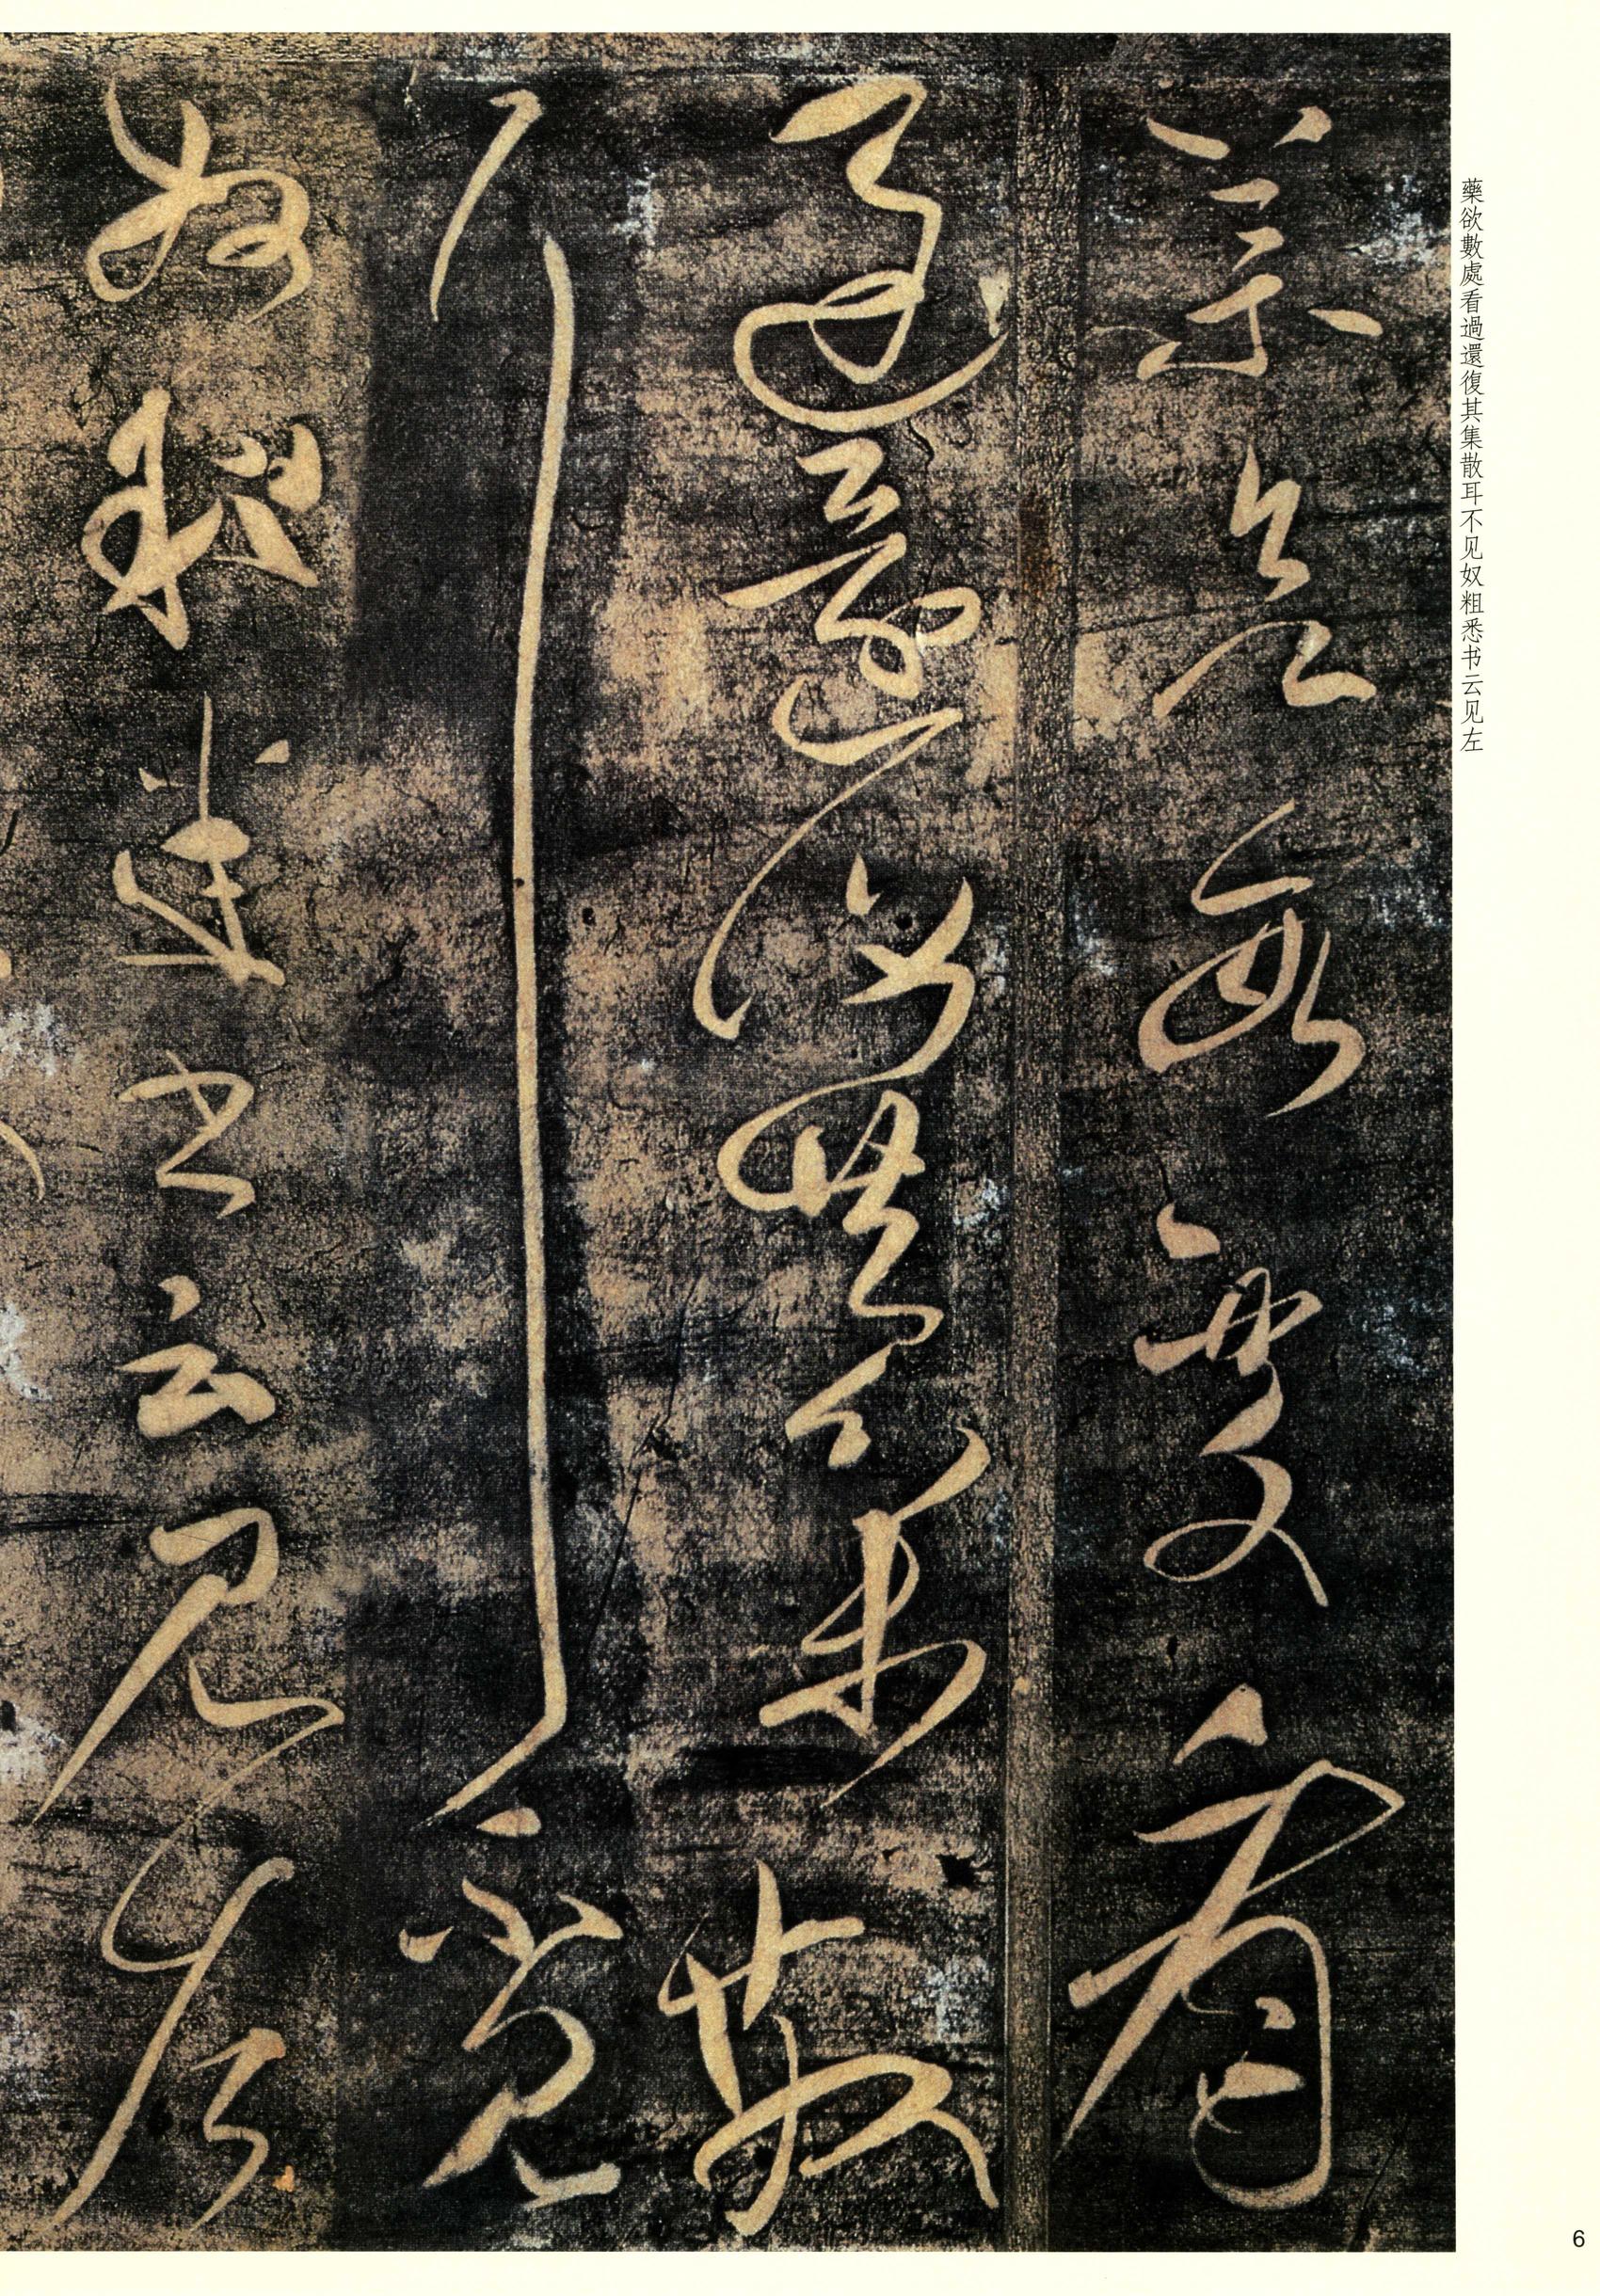 藥欲數處看過還復其集散耳不见奴粗悉书云见左
藥欲數處看
過還復其集散
耳不见
奴粗悉书云见左
6